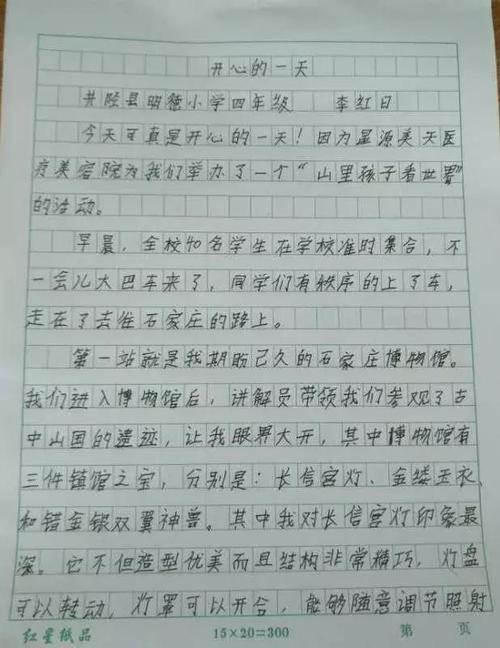 开心的一天
井陉县明德小学四年级 李红日
今天可真是开心的一天！因为星源美天医
疗美容院为我们举办了一个“山里孩子看世界”
的活动。
早晨，全校40名学生在学校准时集合，不
一会儿大巴车来了，同学们有秩序的上了车，
走在了去往石家庄的路上。
第一站就是我期盼已久的石家庄博物馆。
我们进入博物馆后，讲解员带领我们参观了古
中山国的遗迹，让我眼界大开，其中博物馆有
三件镇馆之宝，分别是：长信宫灯、金缕玉衣、
和错金银双翼神兽。其中我对长信宫灯印象最
深。它不但造型优美而且结构非常精巧，灯盘
可以转动，灯罩可以开合，能够随意调节照射
红星纸品 15×20=300 第 页